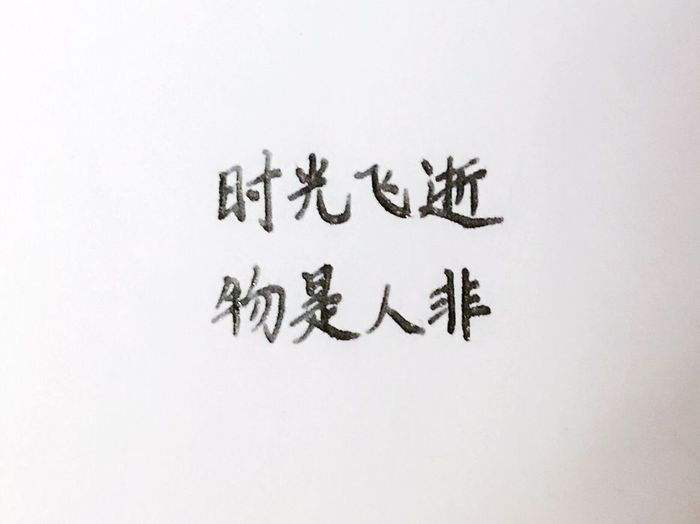 时光飞逝
物是人非